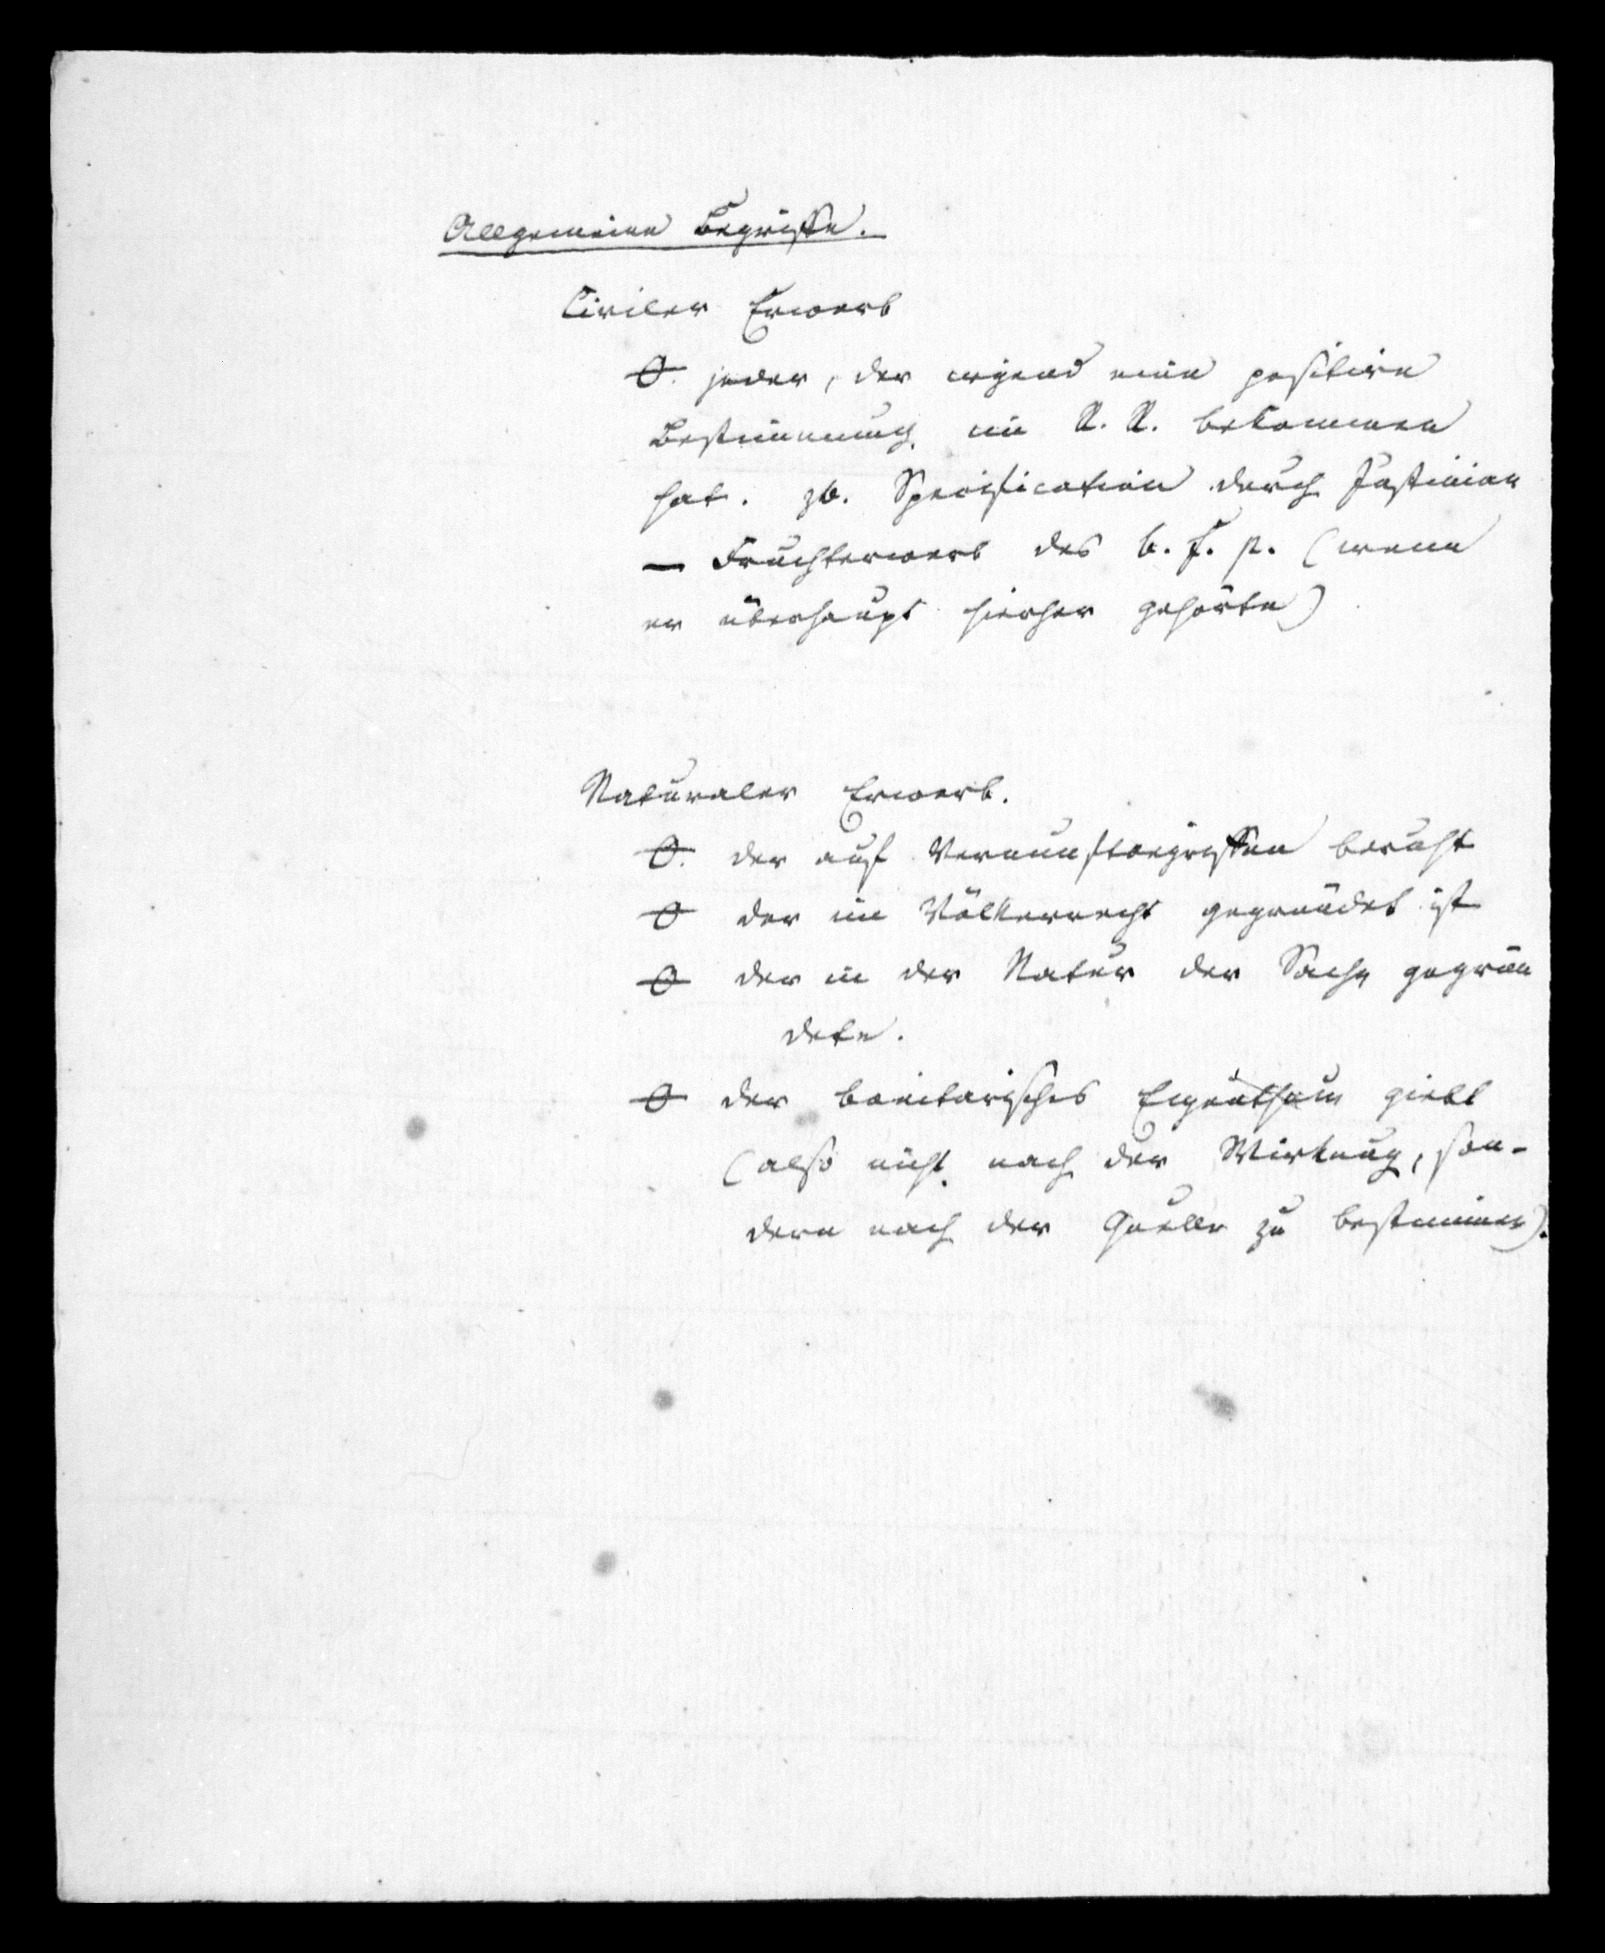 Allgemeine Begriffe.
Civiler Erwerb
O. jeder, der irgend eine positive
Bestimmung im R. R. bekommen
hat. zb. Specification durch Justinian
— Fruchterwerb des b. f. p. (wenn
er überhaupt hierher gehörte)
Naturaler Erwerb.
O. der auf Vernunftbegriffen beruht
O der im Völkerrecht gegründet ist
O der in der Natur der Sache gegrün
dete.
O der bonitarisches Eigenthum giebt
(also nicht nach der Wirkung, son-
dern nach der Quelle zu bestimmen).